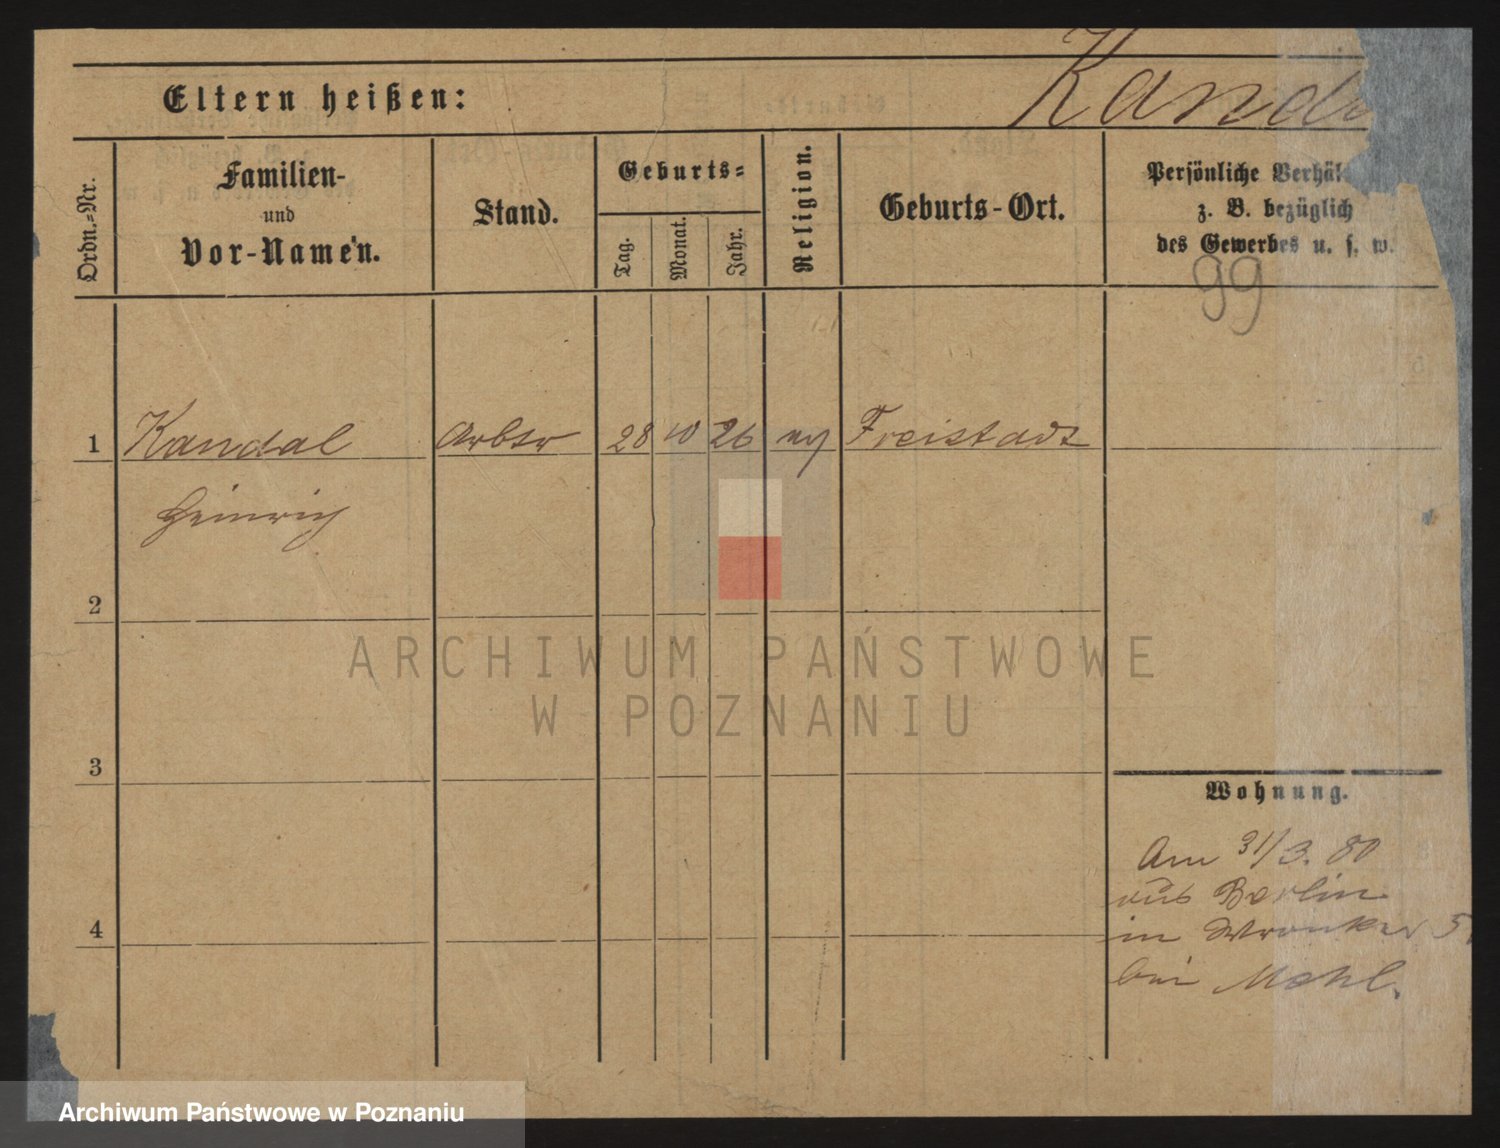 Kand
Eltern heißen:
Ordn.-Nr.
Familien-
und
Vor-Namen.
Stand.
Geburts-
Tag.
Monat.
Jahr.
Religion.
Geburts-Ort.
Persönliche Verhäl
z. B. bezüglich
des Gewerbes u. s. w.
99
1 Kandal Arbtr 28 10 26 Freistadt
Heinrich
2
3
4
Wohnung.
Am 31/3. 80
aus Berlin
in Wronker 5
bei Mohl.
ARCHIWUM PAŃSTWOWE
W POZNANIU
Archiwum Państwowe w Poznaniu